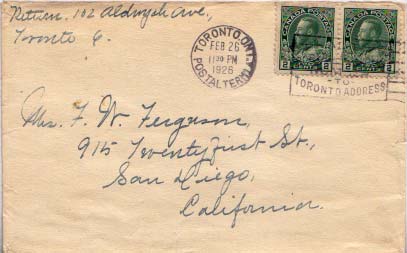 Return. 102 Aldwych Ave.,
Toronto 6.
TORONTO, ONT.
FEB 26
11 30 PM
1926
POSTAL TERM. A
CANADA POSTAGE
2 2
CANADA POSTAGE
2 2
-TO-
TORONTO ADDRESS
Mrs. F. W. Ferguson,
915 Twentyfirst St.,
San Diego,
California.